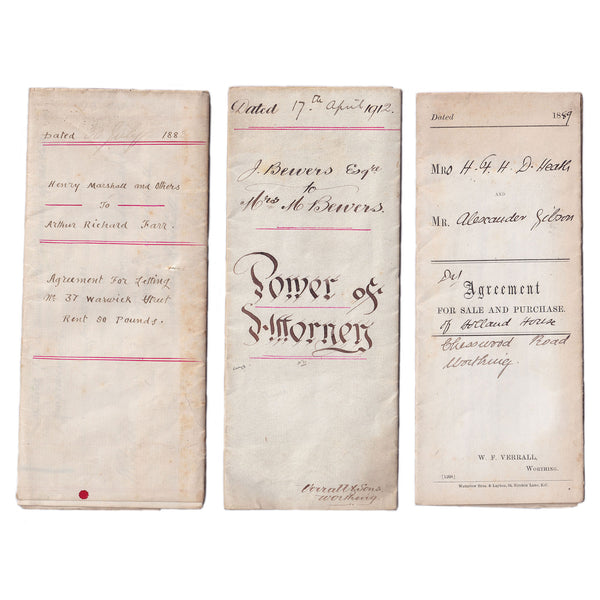 Dated July 188
Henry Marshall and Others
To
Arthur Richard Farr.
Agreement For Letting
No 37 Warwick Street
Rent 80 Pounds.
Dated 17th April 1912.
J. Bewers Esqre
to
Mrs M Bewers.
Power of
Attorney
Verrall & Sons
Worthing.
Dated 1889
H. D. Heath
AND
MR. Alexander Gibson
Agreement
FOR SALE AND PURCHASE.
of Holland House
Chesswood Road
Worthing.
W. F. VERRALL,
WORTHING.